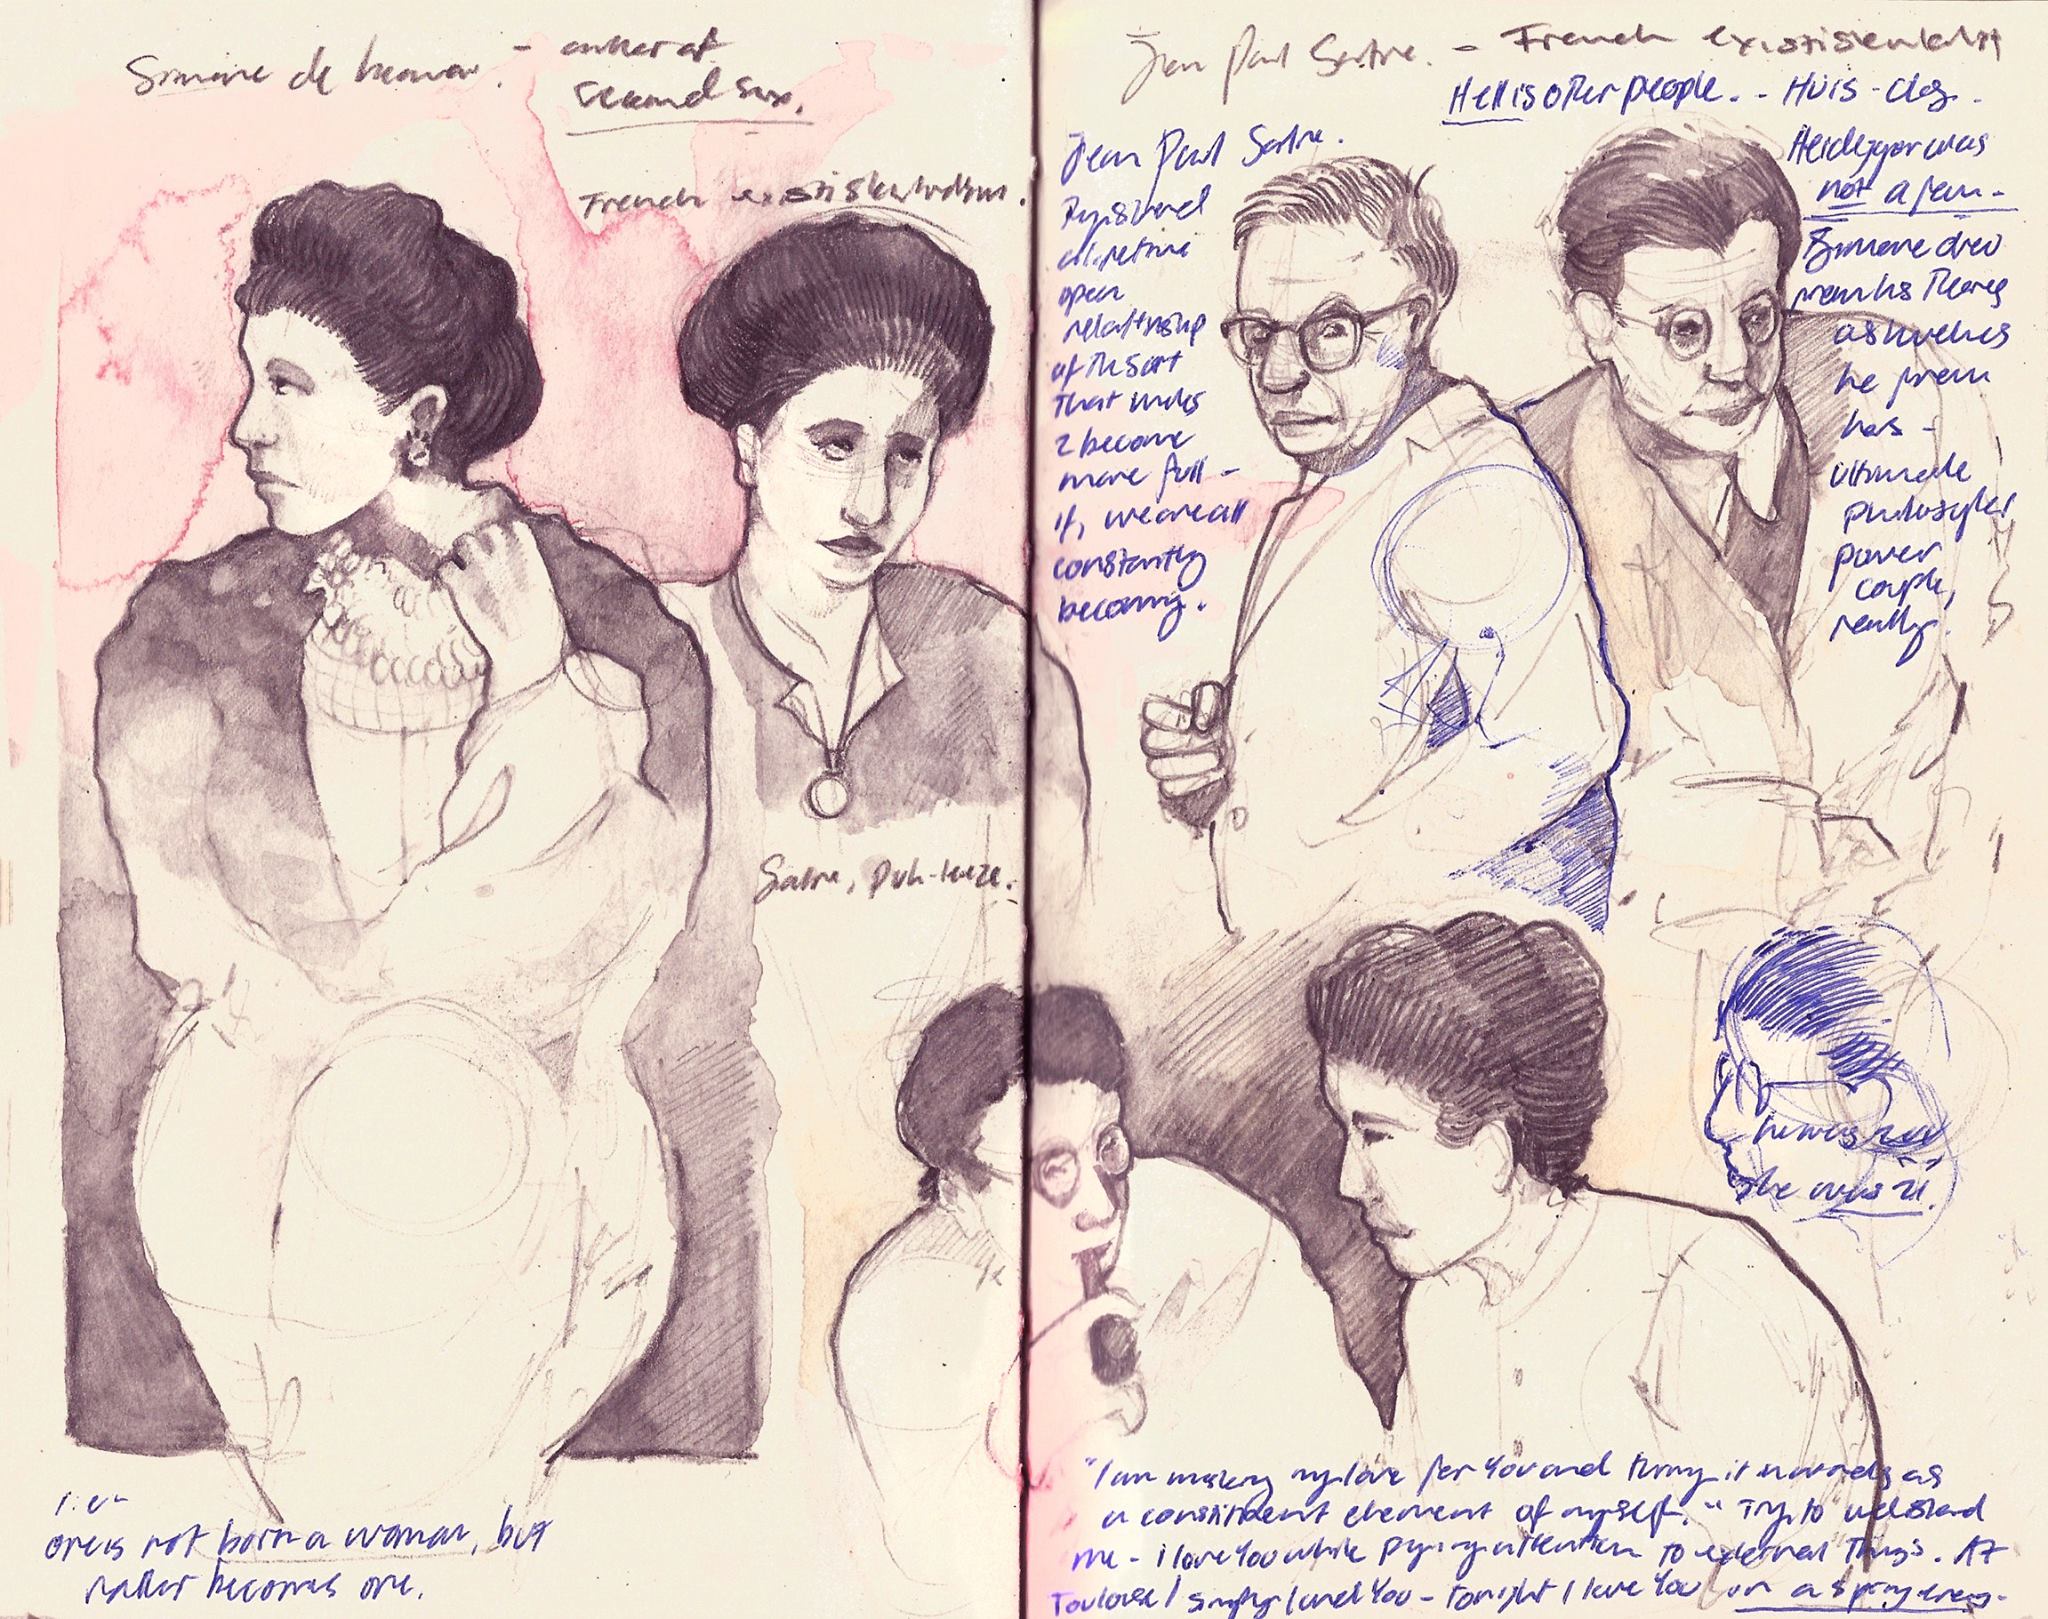 Simone de Beauvoir. - author of
Second Sex.
French existisientialism.
Sartre, Puh-leeze.
i.e
one is not born a woman, but
rather becomes one.
Jean Paul Sartre. - French existisientialist
Hell is other people. - Huis-clos.
Jean Paul Sartre.
open
relationship
of the sort
that makes
2 become
more full -
if, we are all
constantly
becoming.
Heidegger was
not a fan -
Simone drew
from his theories
as much as
he from
hers -
ultimate
philosopher
power
couple,
really.
he was
she was 21.
"I am making my love for you and turning it inwards as
a constituent element of myself." Try to understand
me - i love you while paying attention to external things. At
Toulouse I simply loved you - tonight I love you on a spring evening.